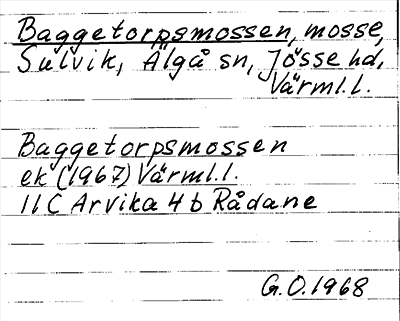 Baggetorpsmossen, mosse,
Sulvik, Älgå sn, Jösse hd,
Värml.l.
Baggetorpsmossen
ek (1967) Värml.l.
11C Arvika 4b Rådane
G.O.1968